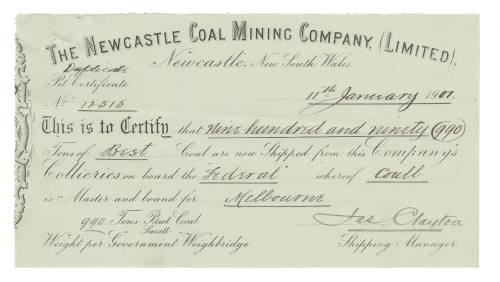 THE NEWCASTLE COAL MINING COMPANY, (LIMITED).
Newcastle, New South Wales.
Duplicate
Pit Certificate
No 12515
11th January 1901.
This is to Certify that Nine hundred and ninety (990)
Tons of Best Coal are now Shipped from this Company's
Collieries on board the "Federal" whereof Coull
is Master and bound for Melbourne
990 Tons Best Coal
Small
Weight per Government Weighbridge
Jas Clayton
Shipping Manager.